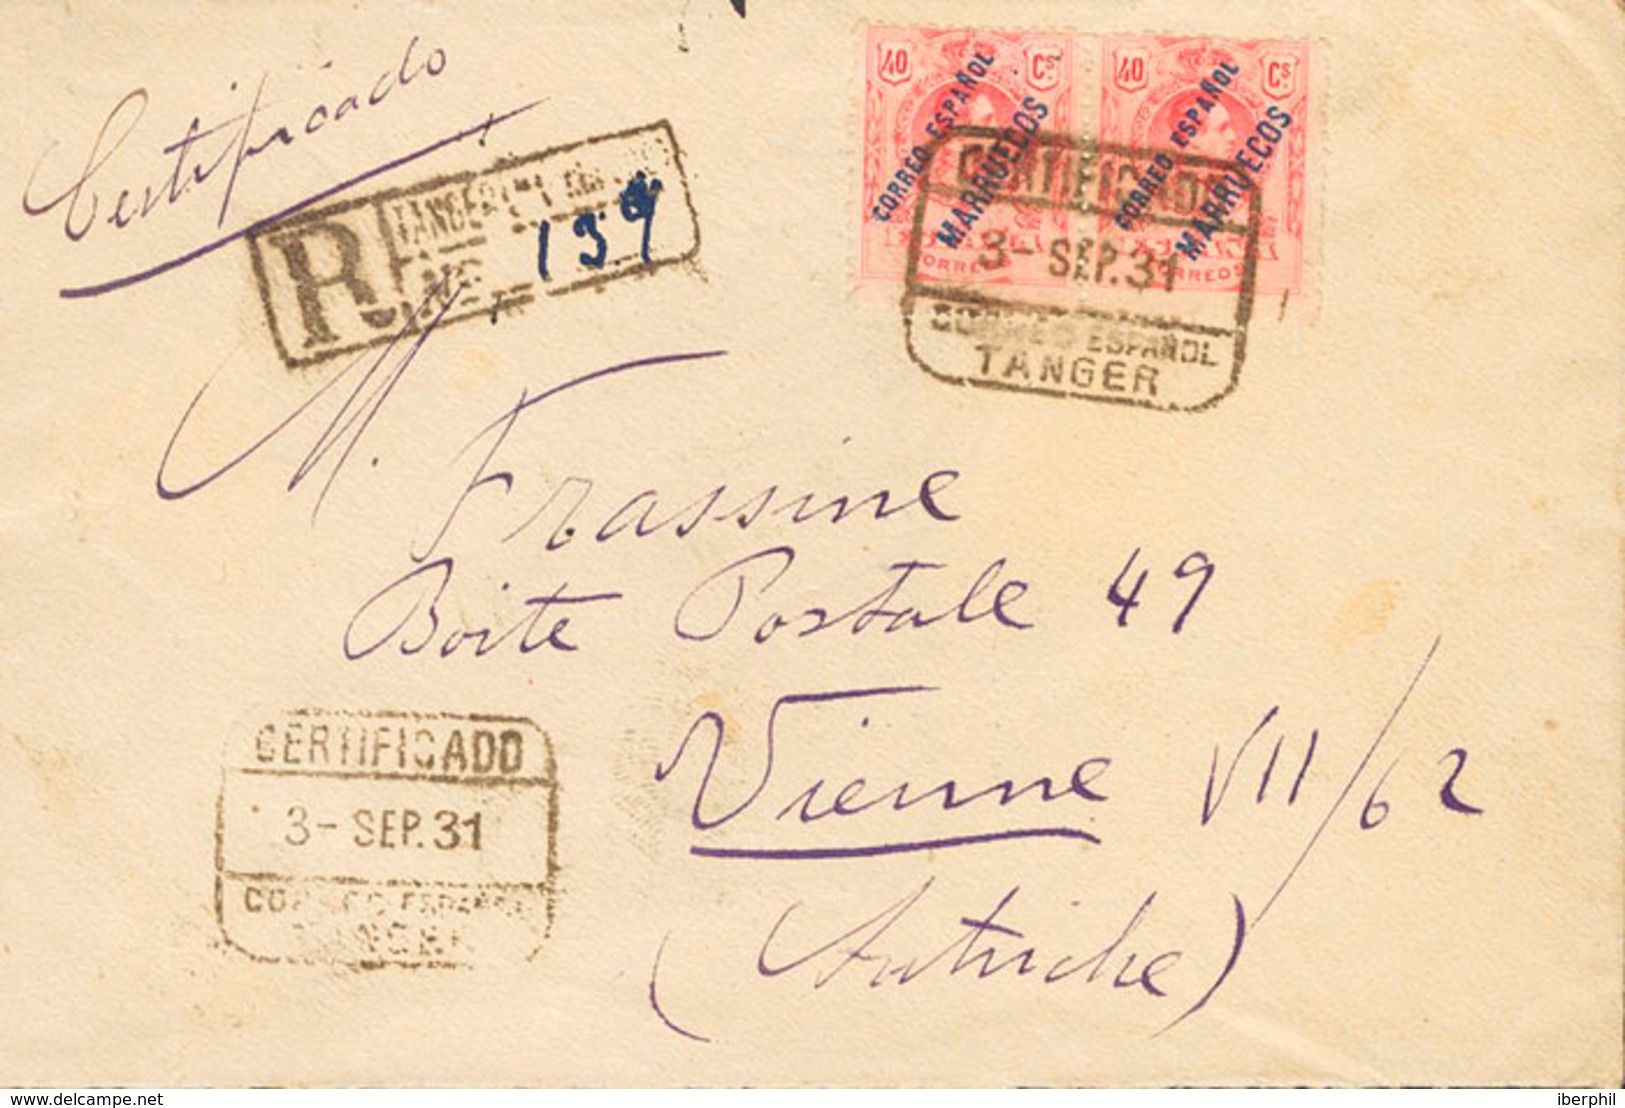 Certificado
R TANGER
Nº 139
40 Cs
CORREO ESPAÑOL
MARRUECOS
CORREOS
40 Cs
CORREO ESPAÑOL
MARRUECOS
CORREOS
CERTIFICADO
3- SEP.31
CORREO ESPAÑOL
TANGER
M. Frassine
Boite Postale 49
Vienne VII/62
(Autriche)
CERTIFICADO
3- SEP.31
CORREO ESPAÑOL
TANGER
delcampe.net
iberphil